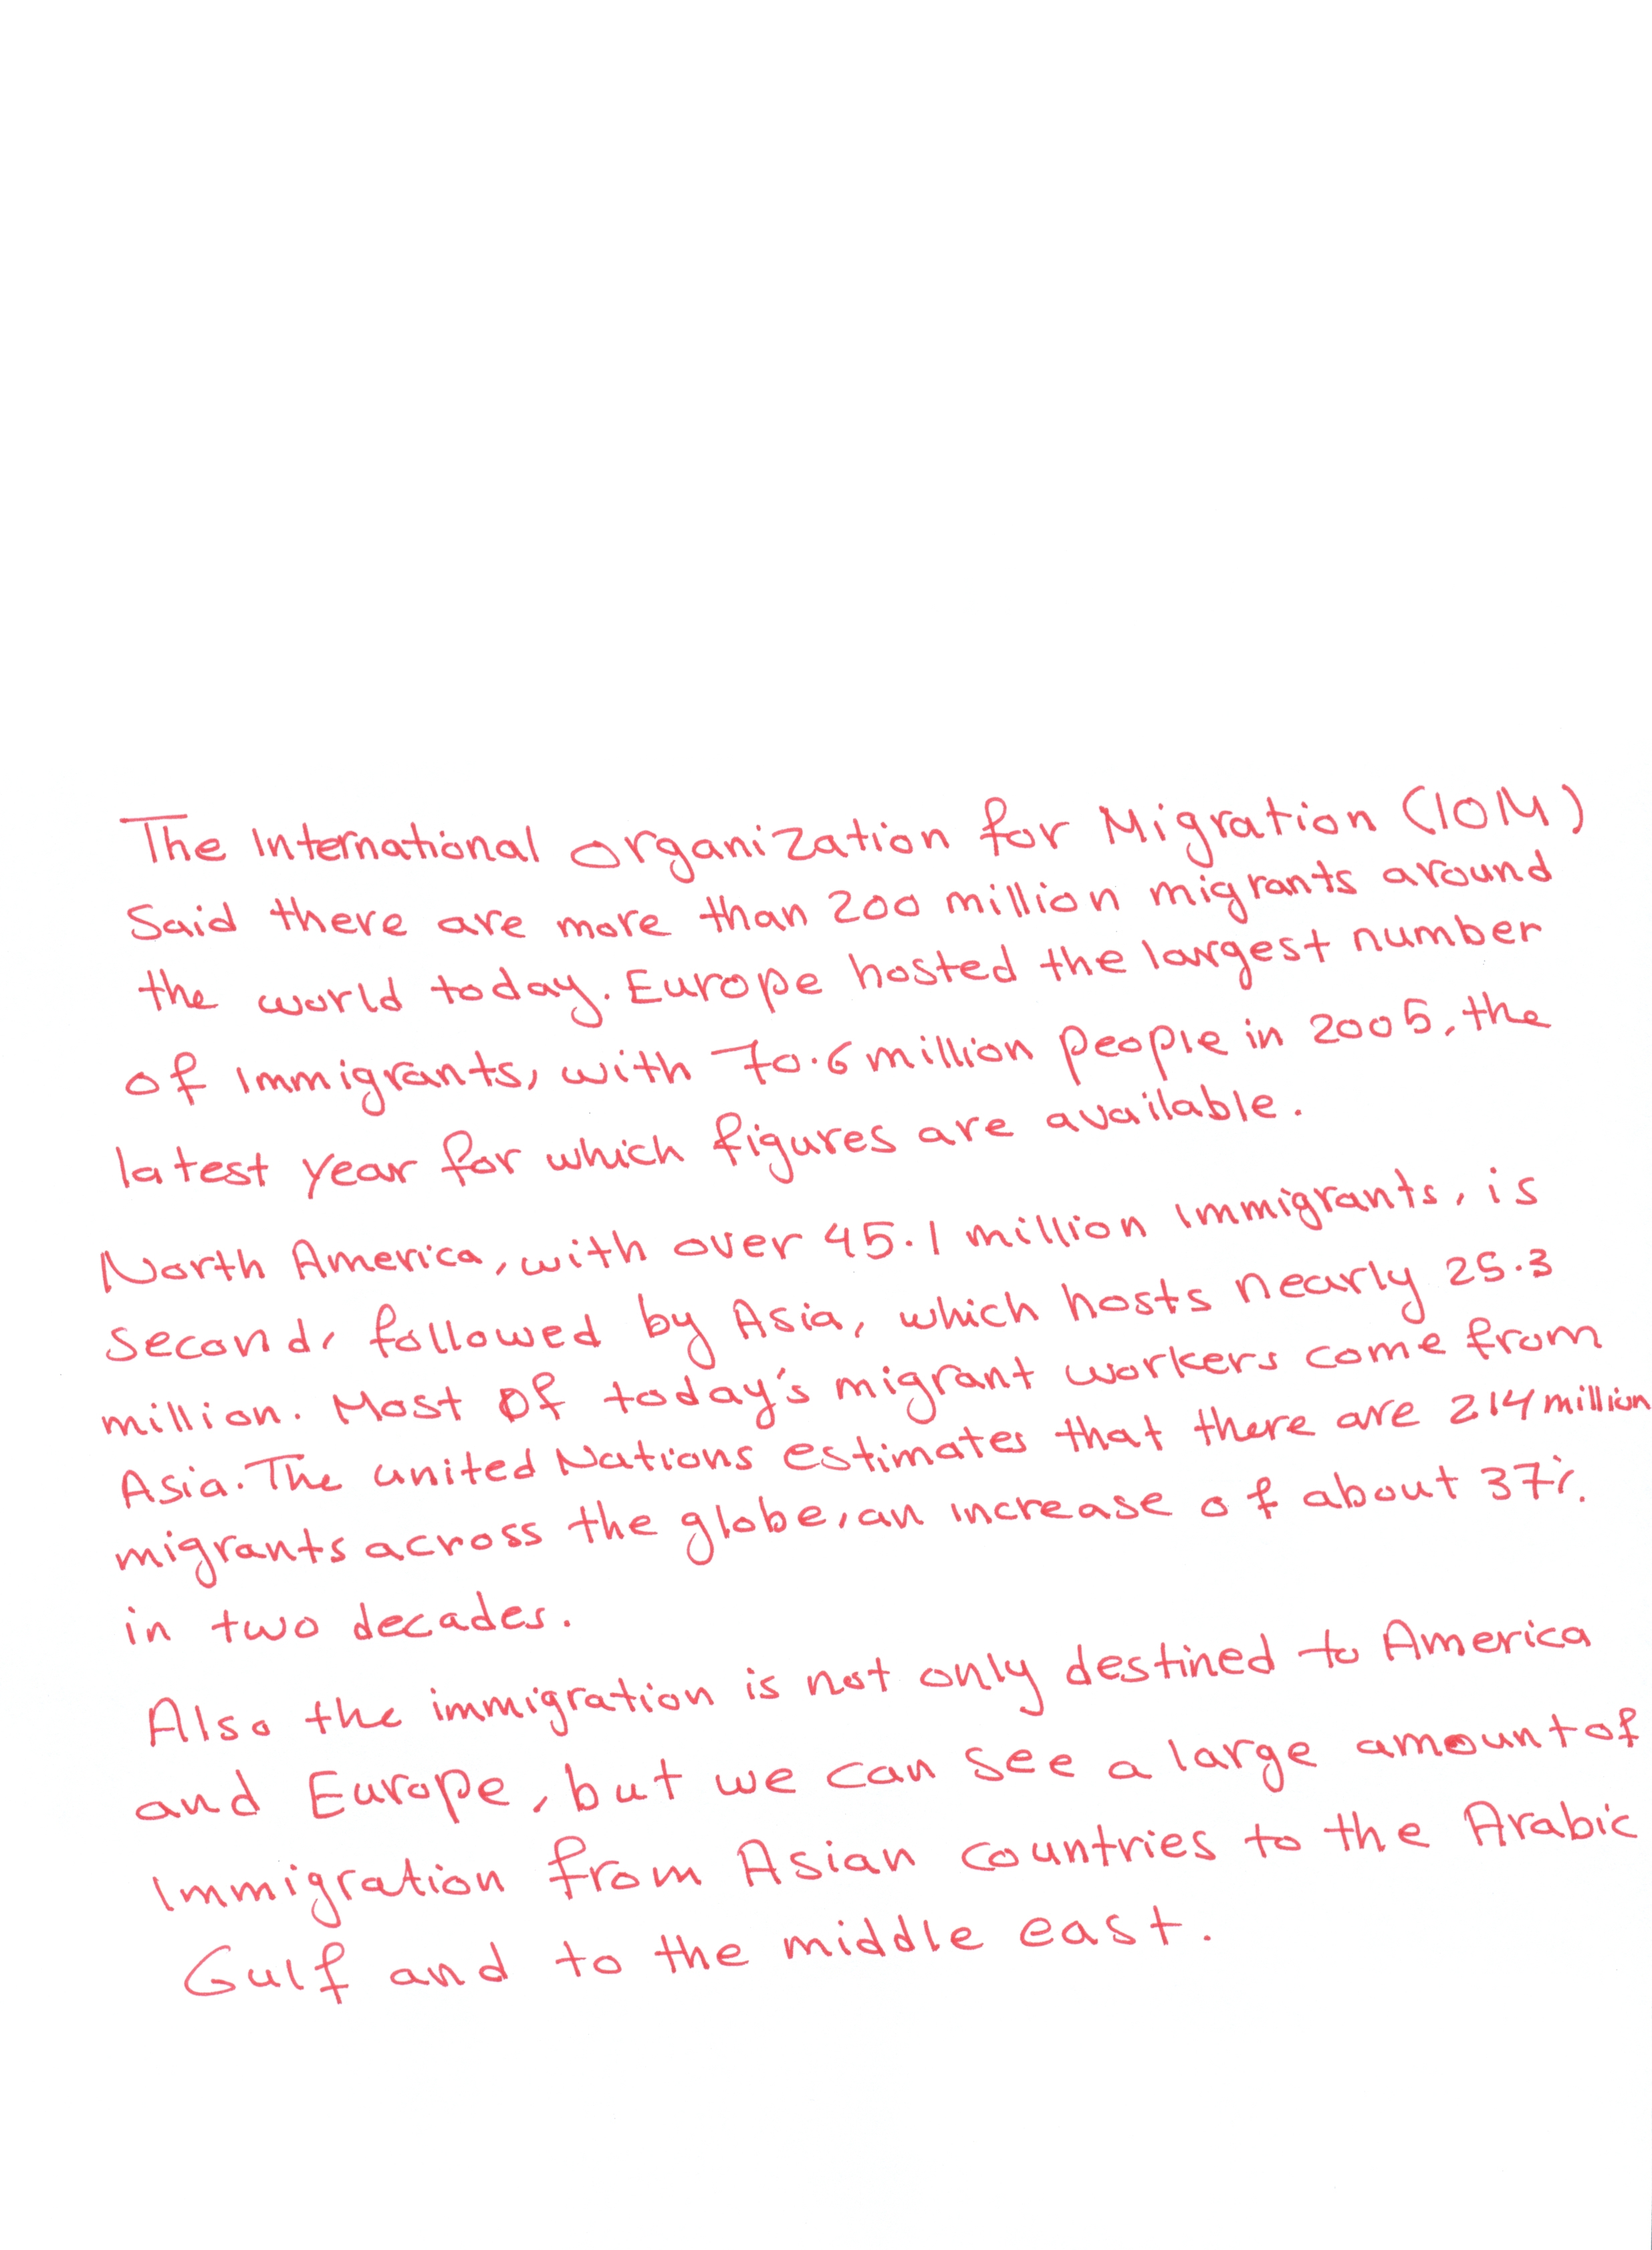 The International organization for Migration (IOM)
Said there are more than 200 million migrants around
the world today. Europe hosted the largest number
of immigrants, with 70.6 million people in 2005, the
latest year for which figures are available.
North America, with over 45.1 million immigrants, is
second, followed by Asia, which hosts nearly 25.3
million. Most of today's migrant workers come from
Asia. The united Nations estimates that there are 214 million
migrants across the globe, an increase of about 37%
in two decades.
Also the immigration is not only destined to America
and Europe, but we can see a large amount of
immigration from Asian countries to the Arabic
Gulf and to the middle east.